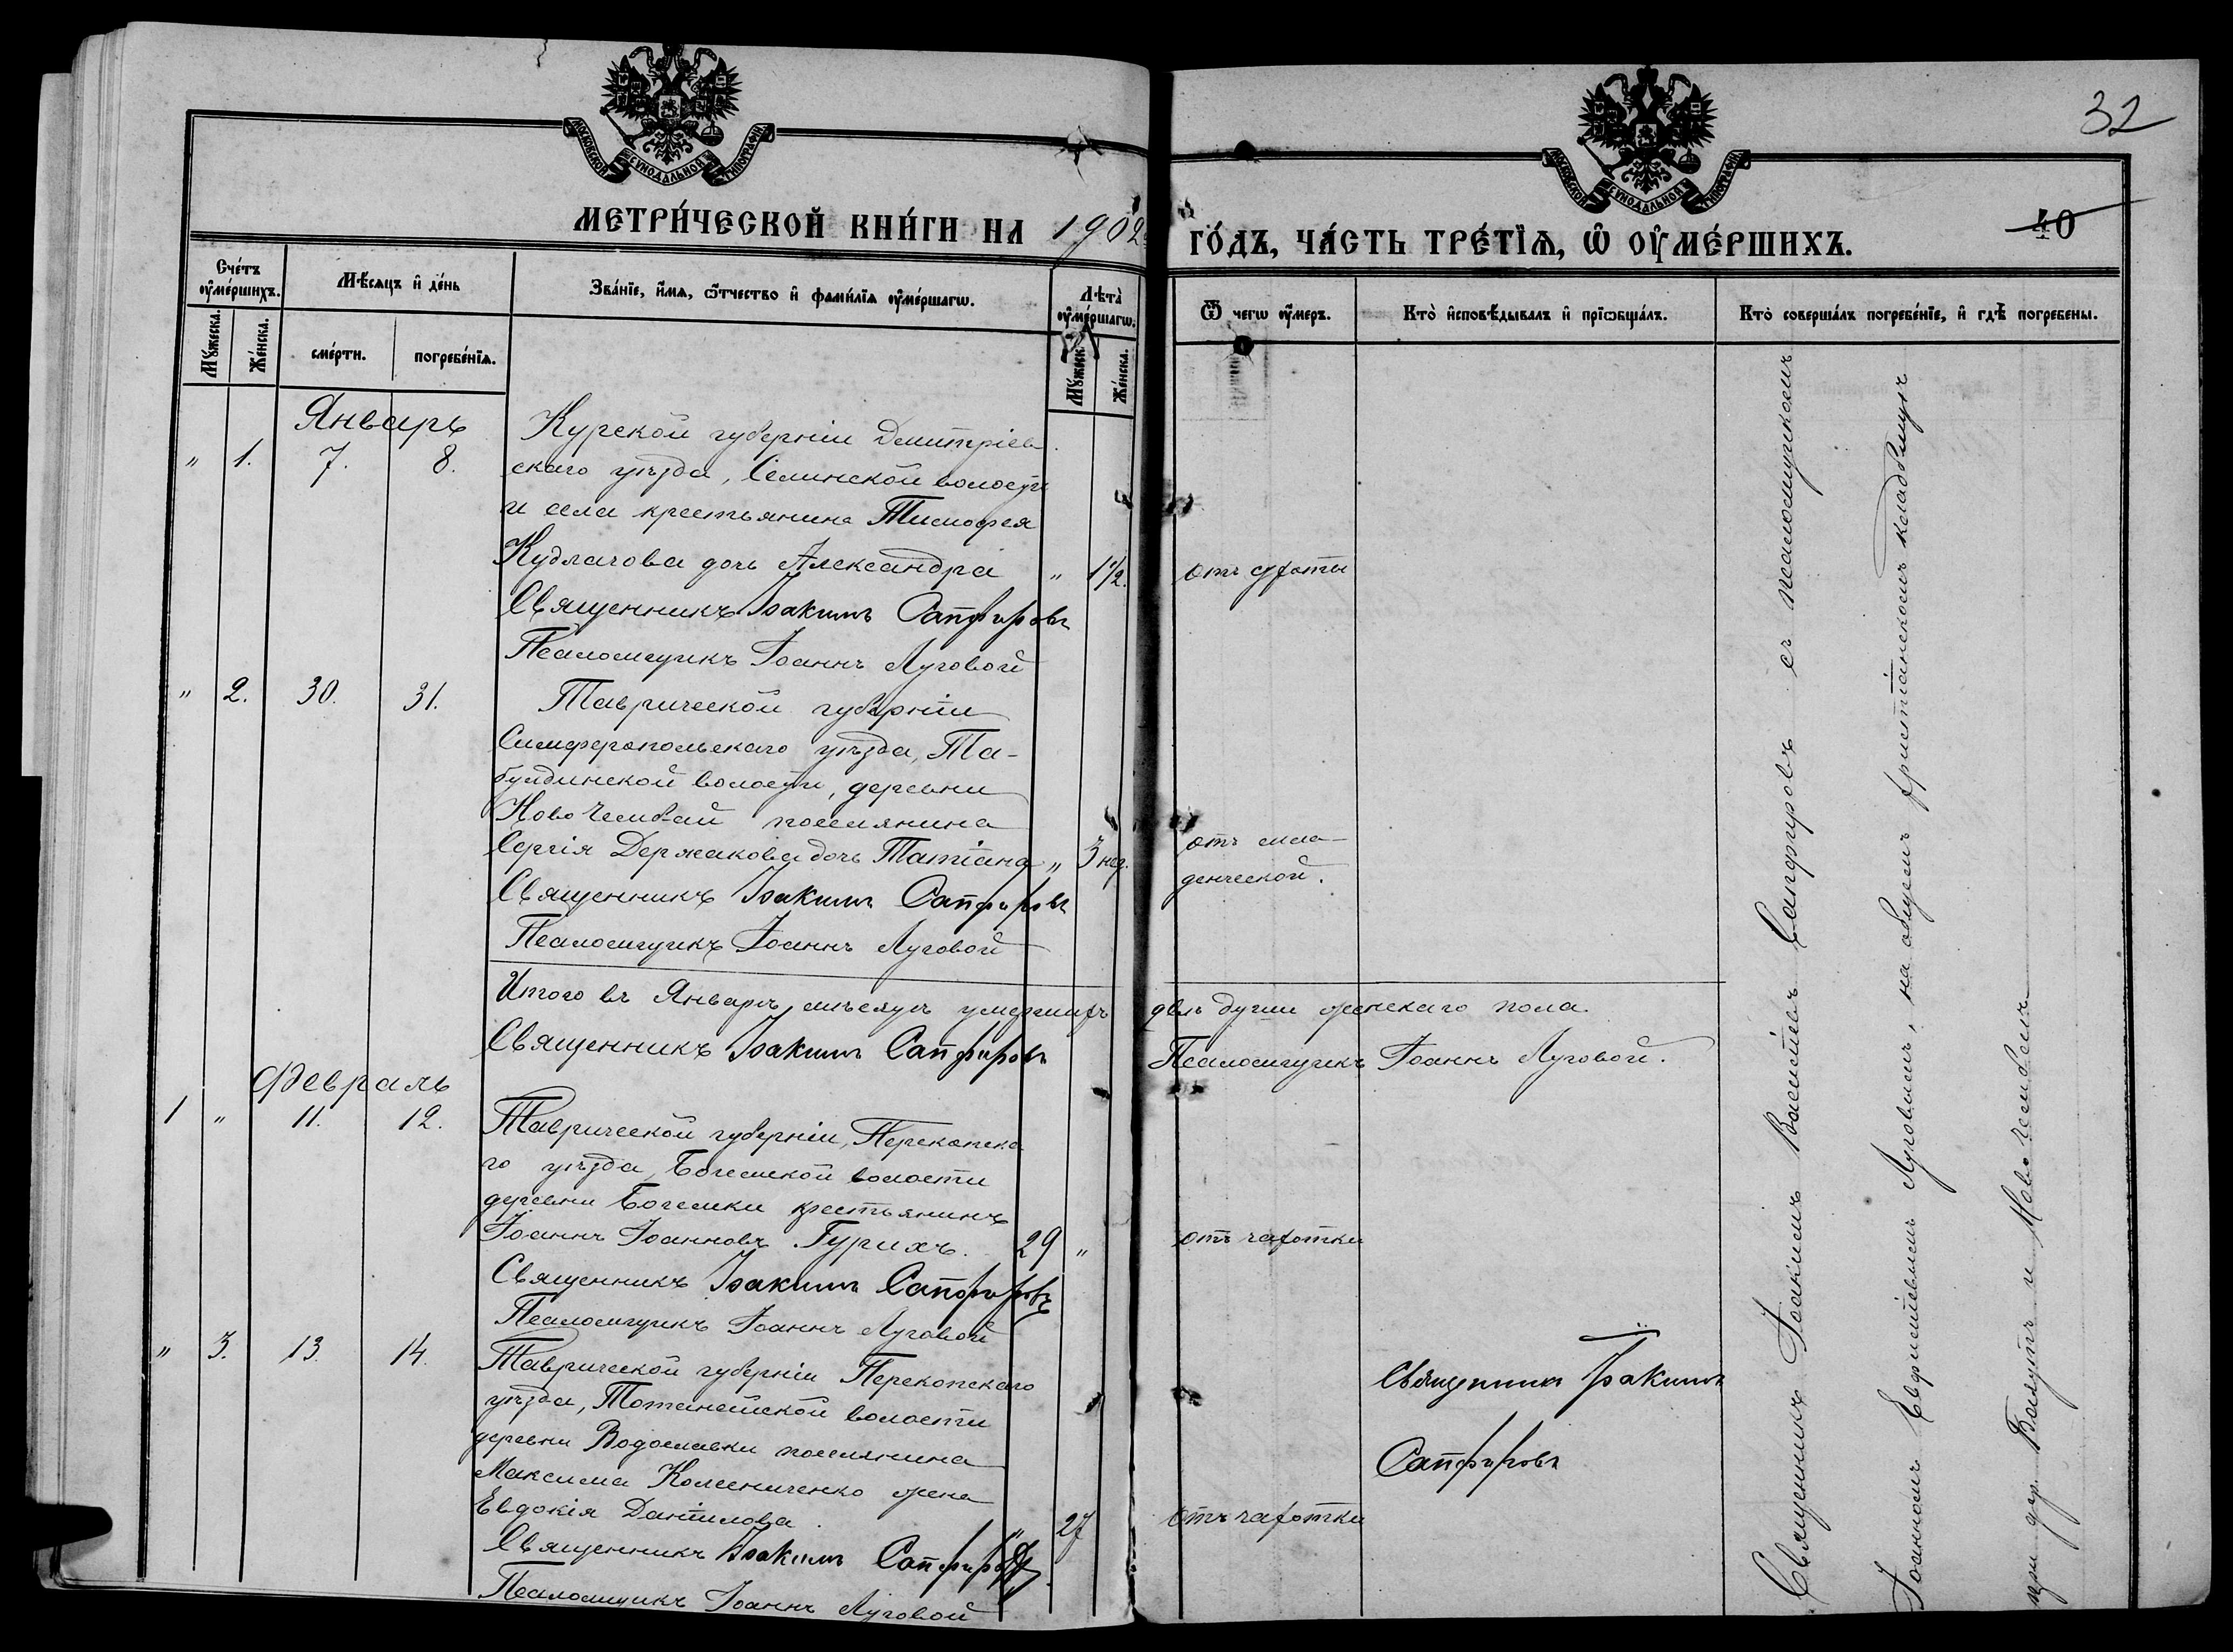 МОСКОВСКОЙ СУНОДАЛЬНОЙ ТИПОГРАФІИ
МЕТРИ́ЧЕСКОЙ КНИ́ГИ НА 1902
Сче́тъ ᲂу҆ме́ршихъ.
Мѣ́сяцъ и҆ де́нь
Зва́нїе, и҆́мя, ѻ҆́тчество и҆ фамилїя ᲂу҆ме́ршагѡ.
Лѣта̀ ᲂу҆ме́ршагѡ.
Мꙋ́жеска.
Же́нска.
сме́рти.
погребе́нїя.
Мꙋ́жеск.
Же́нска.
Январь
" 1. 7. 8.
Курской губерніи Дмитріев
скаго уѣзда, Селинской волости
и села крестьянина Тимофея
Кудлачова дочь Александра " 1½.
Священникъ Іоакимъ Сапфировъ
Псаломщикъ Іоаннъ Луговой
" 2. 30. 31.
Таврической губерніи
Симферопольскаго уѣзда, Та-
булдинской волости, деревни
Ново Чембай поселянина
Сергія Держакова дочь Татіана " 3 нед.
Священникъ Іоакимъ Сапфировъ
Псаломщикъ Іоаннъ Луговой
Итого въ Январѣ мѣсяцѣ умершихъ
Священникъ Іоакимъ Сапфировъ
Февраль
1 " 11. 12.
Таврической губерніи, Перекопска
го уѣзда, Богемской волости
деревни Богемки крестьянинъ
Іоаннъ Іоанновъ Гурихъ. 29 "
Священникъ Іоакимъ Сапфировъ
Псаломщикъ Іоаннъ Луговой
" 3. 13. 14.
Таврической губерніи Перекопскаго
уѣзда, волости
деревни Водославки поселянина
Максима Колесниченко жена
Евдокія Даніилова. " 27
Священникъ Іоакимъ Сапфировъ
Псаломщикъ Іоаннъ Луговой
32
МОСКОВСКОЙ СУНОДАЛЬНОЙ ТИПОГРАФІИ
40
ГО́ДЪ, ЧА́СТЬ ТРЕ́ТЇѦ, Ѡ҆ ОУ҆МЕ́РШИХЪ.
Ѿ чегѡ ᲂу҆́меръ.
Кто̀ и҆сповѣ́дывалъ и҆ прїѡбща́лъ.
Кто̀ соверша́лъ погребе́нїе, и҆ гдѣ̀ погребены.
отъ сухоты
отъ мла-
денческой.
двѣ души женскаго пола.
Псаломщикъ Іоаннъ Луговой.
отъ чахотки
Священникъ Іоакимъ
Сапфировъ
отъ чахотки
Священникъ Іоакимъ Василіевъ Сапфировъ съ псаломщикомъ
Іоанномъ Евфиміевымъ Луговымъ, на общемъ христіанскомъ кладбищѣ
при дер. и Ново Чембаѣ